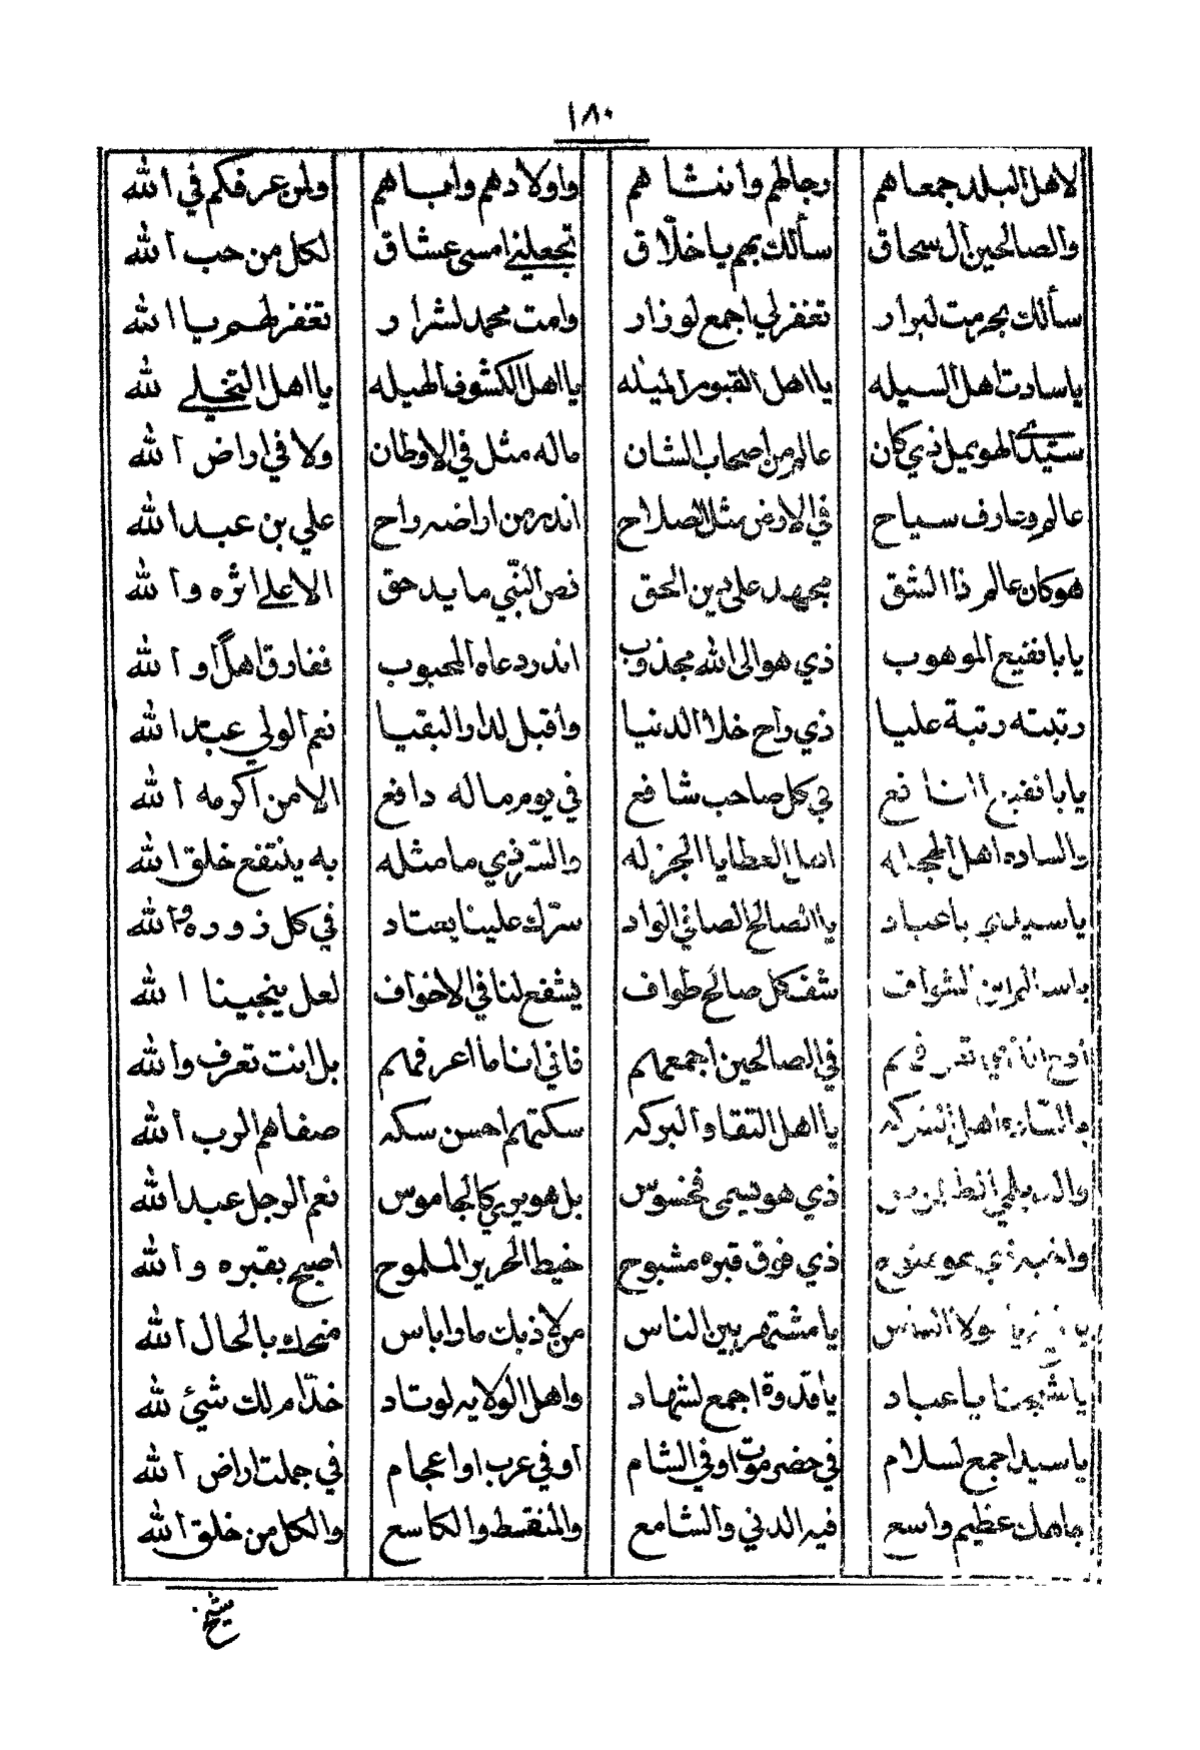 ١٨٠
لاهل البلد جمعاهم رجالهم وأنثاهم واولادهم وابهاهم ولمن عرفكم في الله
والصالحين آل سحاق سألتك بهم يا خلّاق تجعلني امسى عشاق لكل من حب الله
سألتك بحرمت لبرار تغفر لي اجمع لوزار وامت محمد لشرار تغفر لهم يا الله
يا سادت اهل السيله يا اهل القبور يا اهل الكشوف الهيله يا اهل التخلي لله
ذي كان عالم من أصحاب الشان ماله مثل في الاوطان ولا في اراض الله
عالم وعارف سياح في الارض مثل الصلاح اندر من اراضه راح علي بن عبدالله
هو كان عالم ذا الشق مجهد على دين الحق نص النّبي ما يدحق الا علي اثره والله
يا با نفيع الموهوب ذي هو الى الله مجذوب اندر دعاه المحبوب ففارق اهلاً والله
رتبته رتبة عليا ذي راح خلا الدنيا واقبل لدار البقيا نعم الولي عبدالله
يا با نفيع انا نافع في كل صاحب شافع في يوم ماله دافع الا من اكرمه الله
والساده اهل العطايا الجزله والسّر ذي ما مثله به ينتفع خلق الله
يا سيدي يا عباد يا الصالح الصافي الواد سرّك علينا يعتاد في كل زوره والله
شف كل صالح طواف يشفع لنا في الاخواف لعل ينجينا الله
في الصالحين اجمعهم فاني انا ما اعرفهم بل انت تعرف والله
والسّاده اهل يا اهل التقا والبركه سكتهم احسن سكه صفاهم الرب الله
ذي هو يسمى فخسوس بل هو يربي كالجاموس نعم الرجل عبدالله
ذي فوق قبره مشبوح خيط الحرير الملموح اصبح بقبره والله
يا مشتهر بين الناس من لاذ بك ما واباس منحاه بالحال الله
يا شيخنا يا عباد يا قدوة اجمع لشهاد واهل الولايه لوتاد خدّام لك شيئ لله
يا سيد اجمع لسلام في حضرموت او في الشام او في عرب او اعجام في جملت اراض الله
جاهك عظيم واسع فيه الدني والشامع والمنقسط والكاسع والكل من خلق الله
شيخ